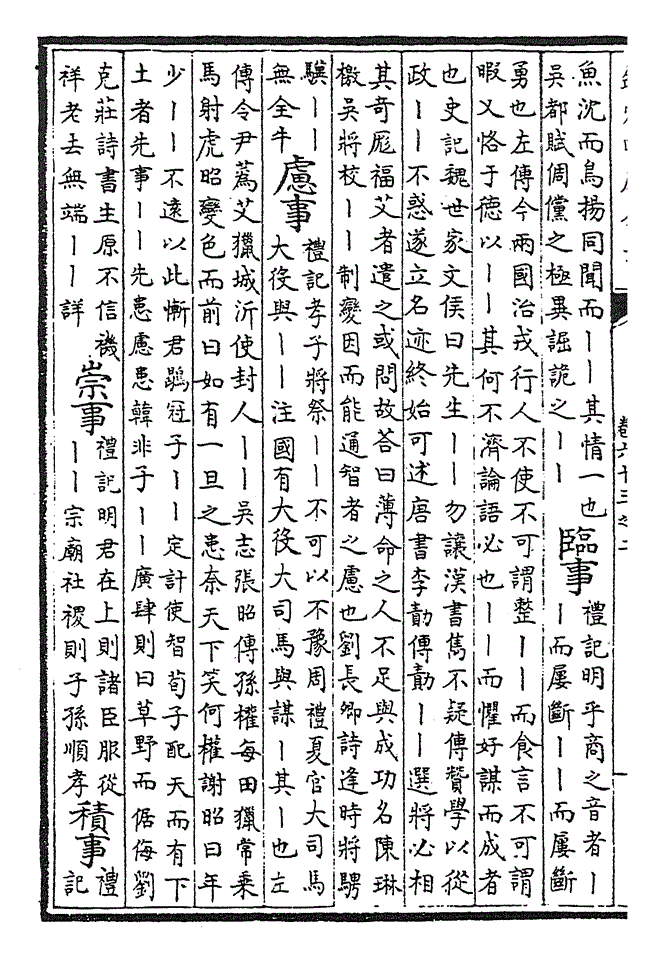 卷六十三之二
魚沈而鳥揚同聞而〡〡其情一也
吳都賦倜儻之極異誳詭之〡〡
臨事
禮記明乎商之音者〡
〡而屢斷〡〡而屢斷
勇也左傳今兩國治戎行人不使不可謂整〡〡而食言不可謂
暇又恪于德以〡〡其何不濟論語必也〡〡而懼好謀而成者
也史記魏世家文侯曰先生〡〡勿讓漢書雋不疑傳贊學以從
政〡〡不惑遂立名迹終始可述唐書李勣傳勣〡〡選將必相
其奇厖福艾者遣之或問故答曰薄命之人不足與成功名陳琳
檄吳將校〡〡制變因而能通智者之慮也劉長卿詩逢時將騁
驥〡〡
無全牛
慮事
禮記孝子將祭〡〡不可以不豫周禮夏官大司馬
大役與〡〡注國有大役大司馬與謀〡其〡也左
傳令尹蒍艾獵城沂使封人〡〡吳志張昭傳孫權每田獵常乗
馬射虎昭變色而前曰如有一旦之患奈天下笑何權謝昭曰年
少〡〡不遠以此慚君鶡冠子〡〡定計使智荀子配天而有下
土者先事〡〡先患慮患韓非子〡〡廣肆則曰草野而倨侮劉
克莊詩書生原不信禨
祥老去無端〡〡詳
崇事
禮記明君在上則諸臣服從
〡〡宗廟社稷則子孫順孝
積事
禮
記